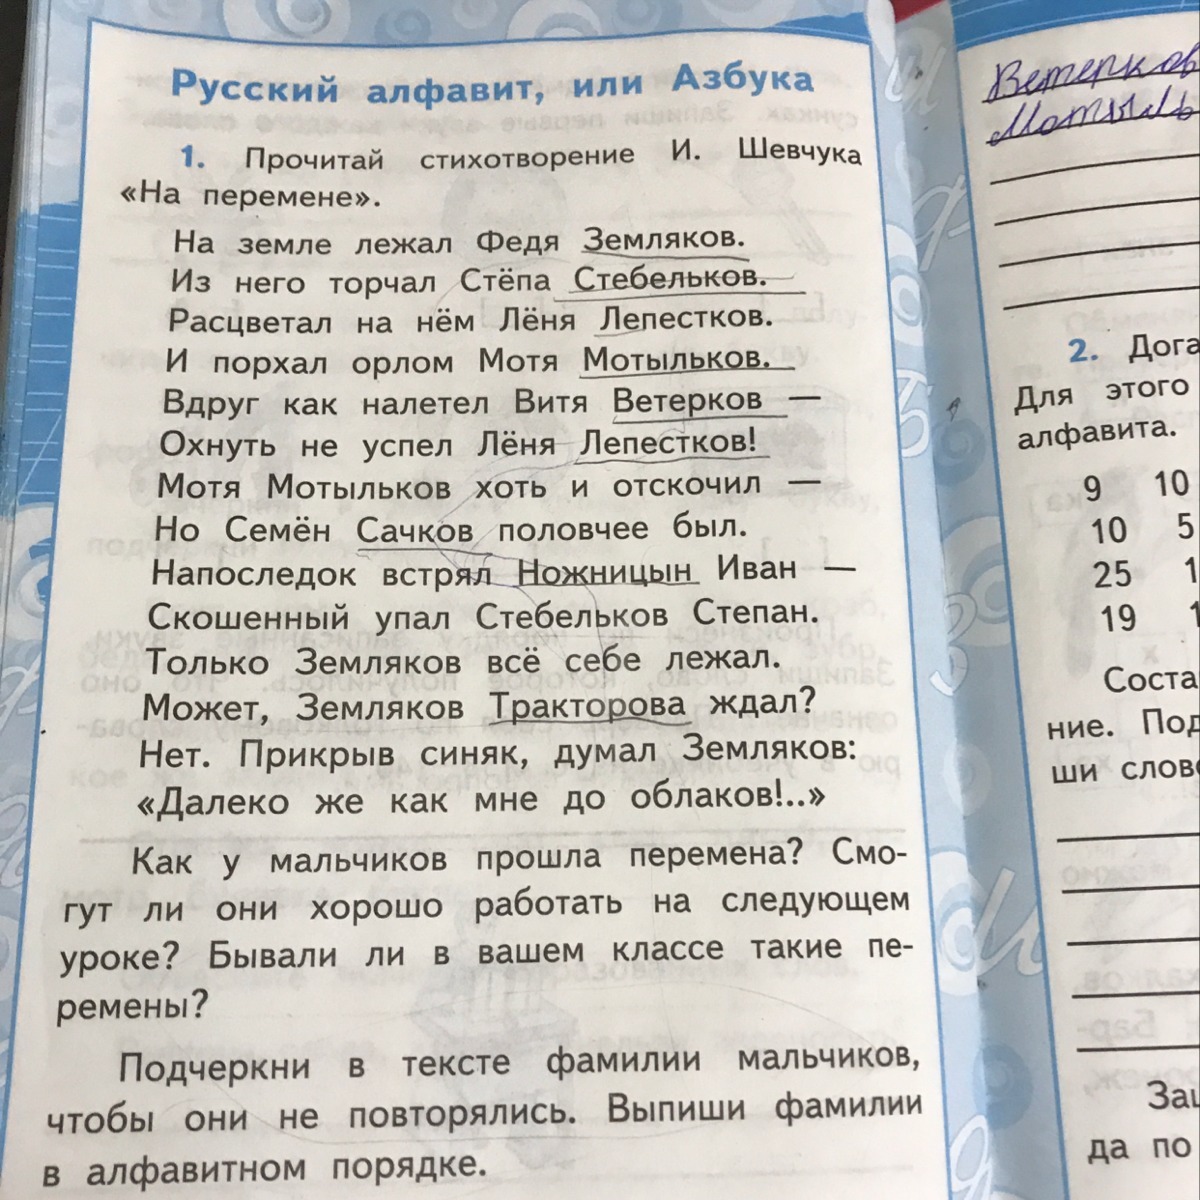 Русский алфавит, или Азбука
1. Прочитай стихотворение И. Шевчука
«На перемене».
На земле лежал Федя Земляков.
Из него торчал Стёпа Стебельков.
Расцветал на нём Лёня Лепестков.
И порхал орлом Мотя Мотыльков.
Вдруг как налетел Витя Ветерков —
Охнуть не успел Лёня Лепестков!
Мотя Мотыльков хоть и отскочил —
Но Семён Сачков половчее был.
Напоследок встрял Ножницын Иван —
Скошенный упал Стебельков Степан.
Только Земляков всё себе лежал.
Может, Земляков Тракторова ждал?
Нет. Прикрыв синяк, думал Земляков:
«Далеко же как мне до облаков!..»
Как у мальчиков прошла перемена? Смо-
гут ли они хорошо работать на следующем
уроке? Бывали ли в вашем классе такие пе-
ремены?
Подчеркни в тексте фамилии мальчиков,
чтобы они не повторялись. Выпиши фамилии
в алфавитном порядке.
Ветерков
Мотыль
2. Дога
Для этого
алфавита.
9 10
10 5
25 1
19 1
Соста
ние. Под
ши слов
Заш
да по